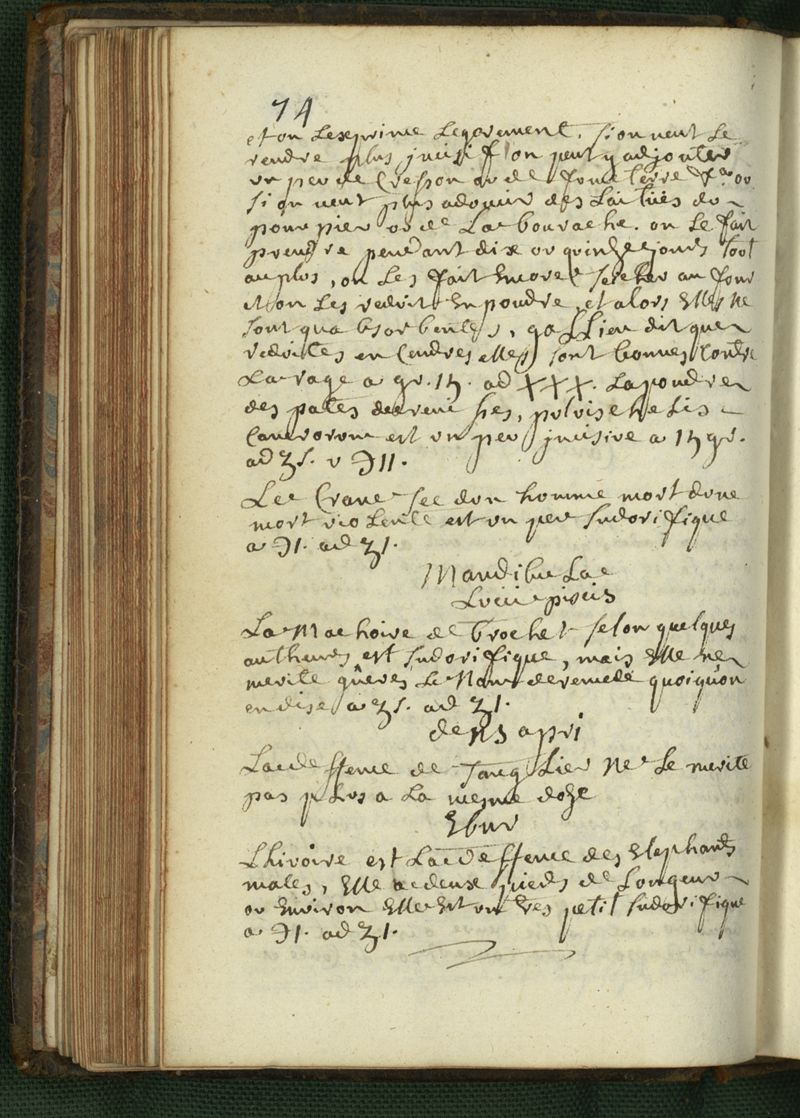 74
et on Lexprime Legerement. si on veut Le
rendre plus jncisif on peut y adjouter
un peu de Cresson ou de fume terre & ou
si on veut plus adoucir des Laitues du
pourpier ou de La bourache. on Le fait
prendre pendant dix ou quinze jours tout
au plus, on Les fait Encore secher au four
et on Les reduit En poudre, et alors Elles ne
sont qu absorbentes, gallien dit que
reduites en Cendres elles sont bonnes Contre
La rage a gr. 15. ad XXX. La poudre
des pates decrevisses, pulvis chelis
Cancrorum est un peu jncisive a 15 gr.
ad ʒs. v ℈11.
Le Crane sec d'un homme mort dune
mort violente est un peu sudorifique
a ℈1. ad ʒ1.
Mandibulae
Lucii piscis
La Machoire de brochet selon quelques
autheurs est sudorifique, mais Elle ne
merite guêres Le Nom de remede quoiquon
en dise a ʒs. ad ʒ1.
dens apri
La deffence de sanglier Ne Le merite
pas plus a La mesme doze
Ebur
Lhivoire est La deffence des Elephants
males, Elle a deux pieds de Longeur
ou Environ Elle Est un tres petit sudorifique
a ℈1. ad ʒ1.